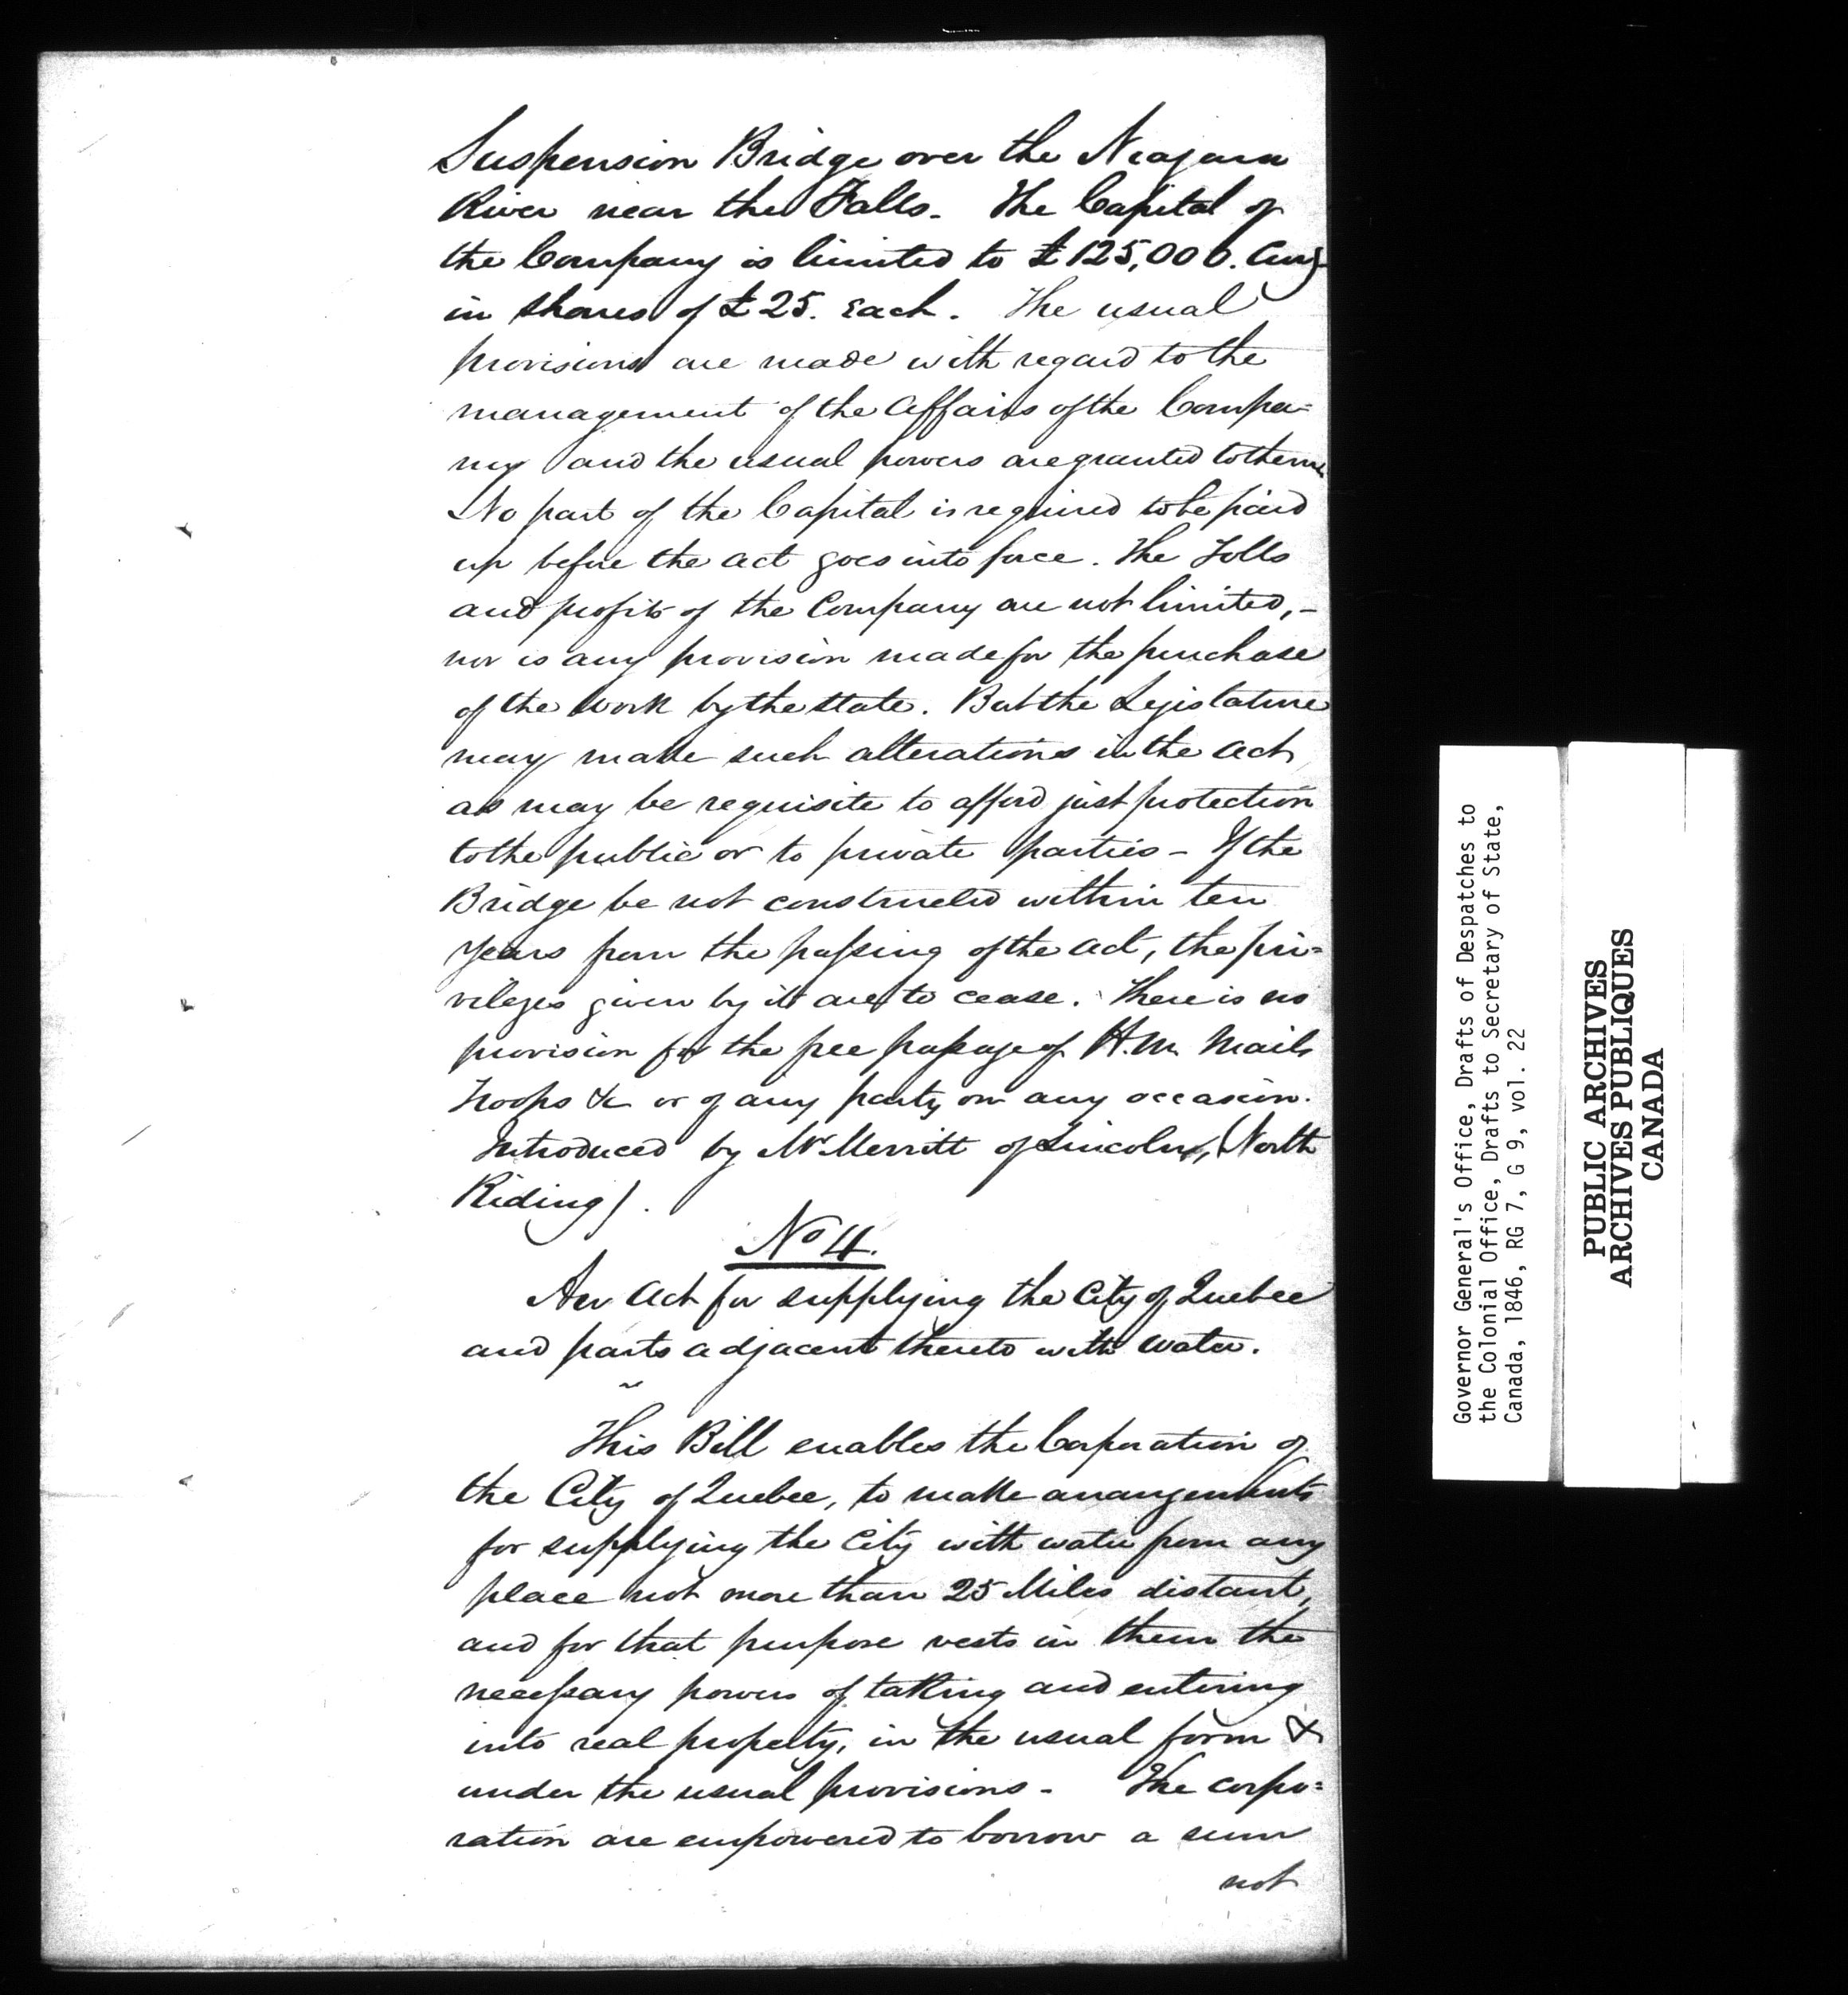 Suspension Bridge over the Niagara
River near the Falls. The Capital of
the Company is limited to £125,000. Curr'y
in shares of £25. Each. The usual
provisions are made with regard to the
management of the affairs of the Compa=
ny and the usual powers are granted to them
No part of the Capital is required to be paid
up before the act goes into force. The Tolls
and profits of the Company are not limited,-
nor is any provision made for the purchase
of the work by the state. But the Legislature
may make such alterations in the act
as may be requisite to afford just protection
to the public or to private parties - If the
Bridge be not constructed within ten
years from the passing of the act, the pri=
vileges given by it are to cease. There is no
provision for the free passage of H.M. Mails
Troops &c or of any party on any occasion.
Introduced by Mr Merritt of Lincoln, (North
Riding).
No 4.
An Act for supplying the City of Quebec
and parts adjacent thereto with water.
This Bill enables the Corporation of
the City of Quebec, to make arrangements
for supplying the City with water from any
place not more than 25 Miles distant,
and for that purpose vests in them the
necessary powers of taking and entering
into real property, in the usual form &
under the usual provisions - The corpo=
ration are empowered to borrow a sum
not
Governor General's Office, Drafts of Despatches to
the Colonial Office, Drafts to Secretary of State,
Canada, 1846, RG 7, G 9, vol. 22
PUBLIC ARCHIVES
ARCHIVES PUBLIQUES
CANADA